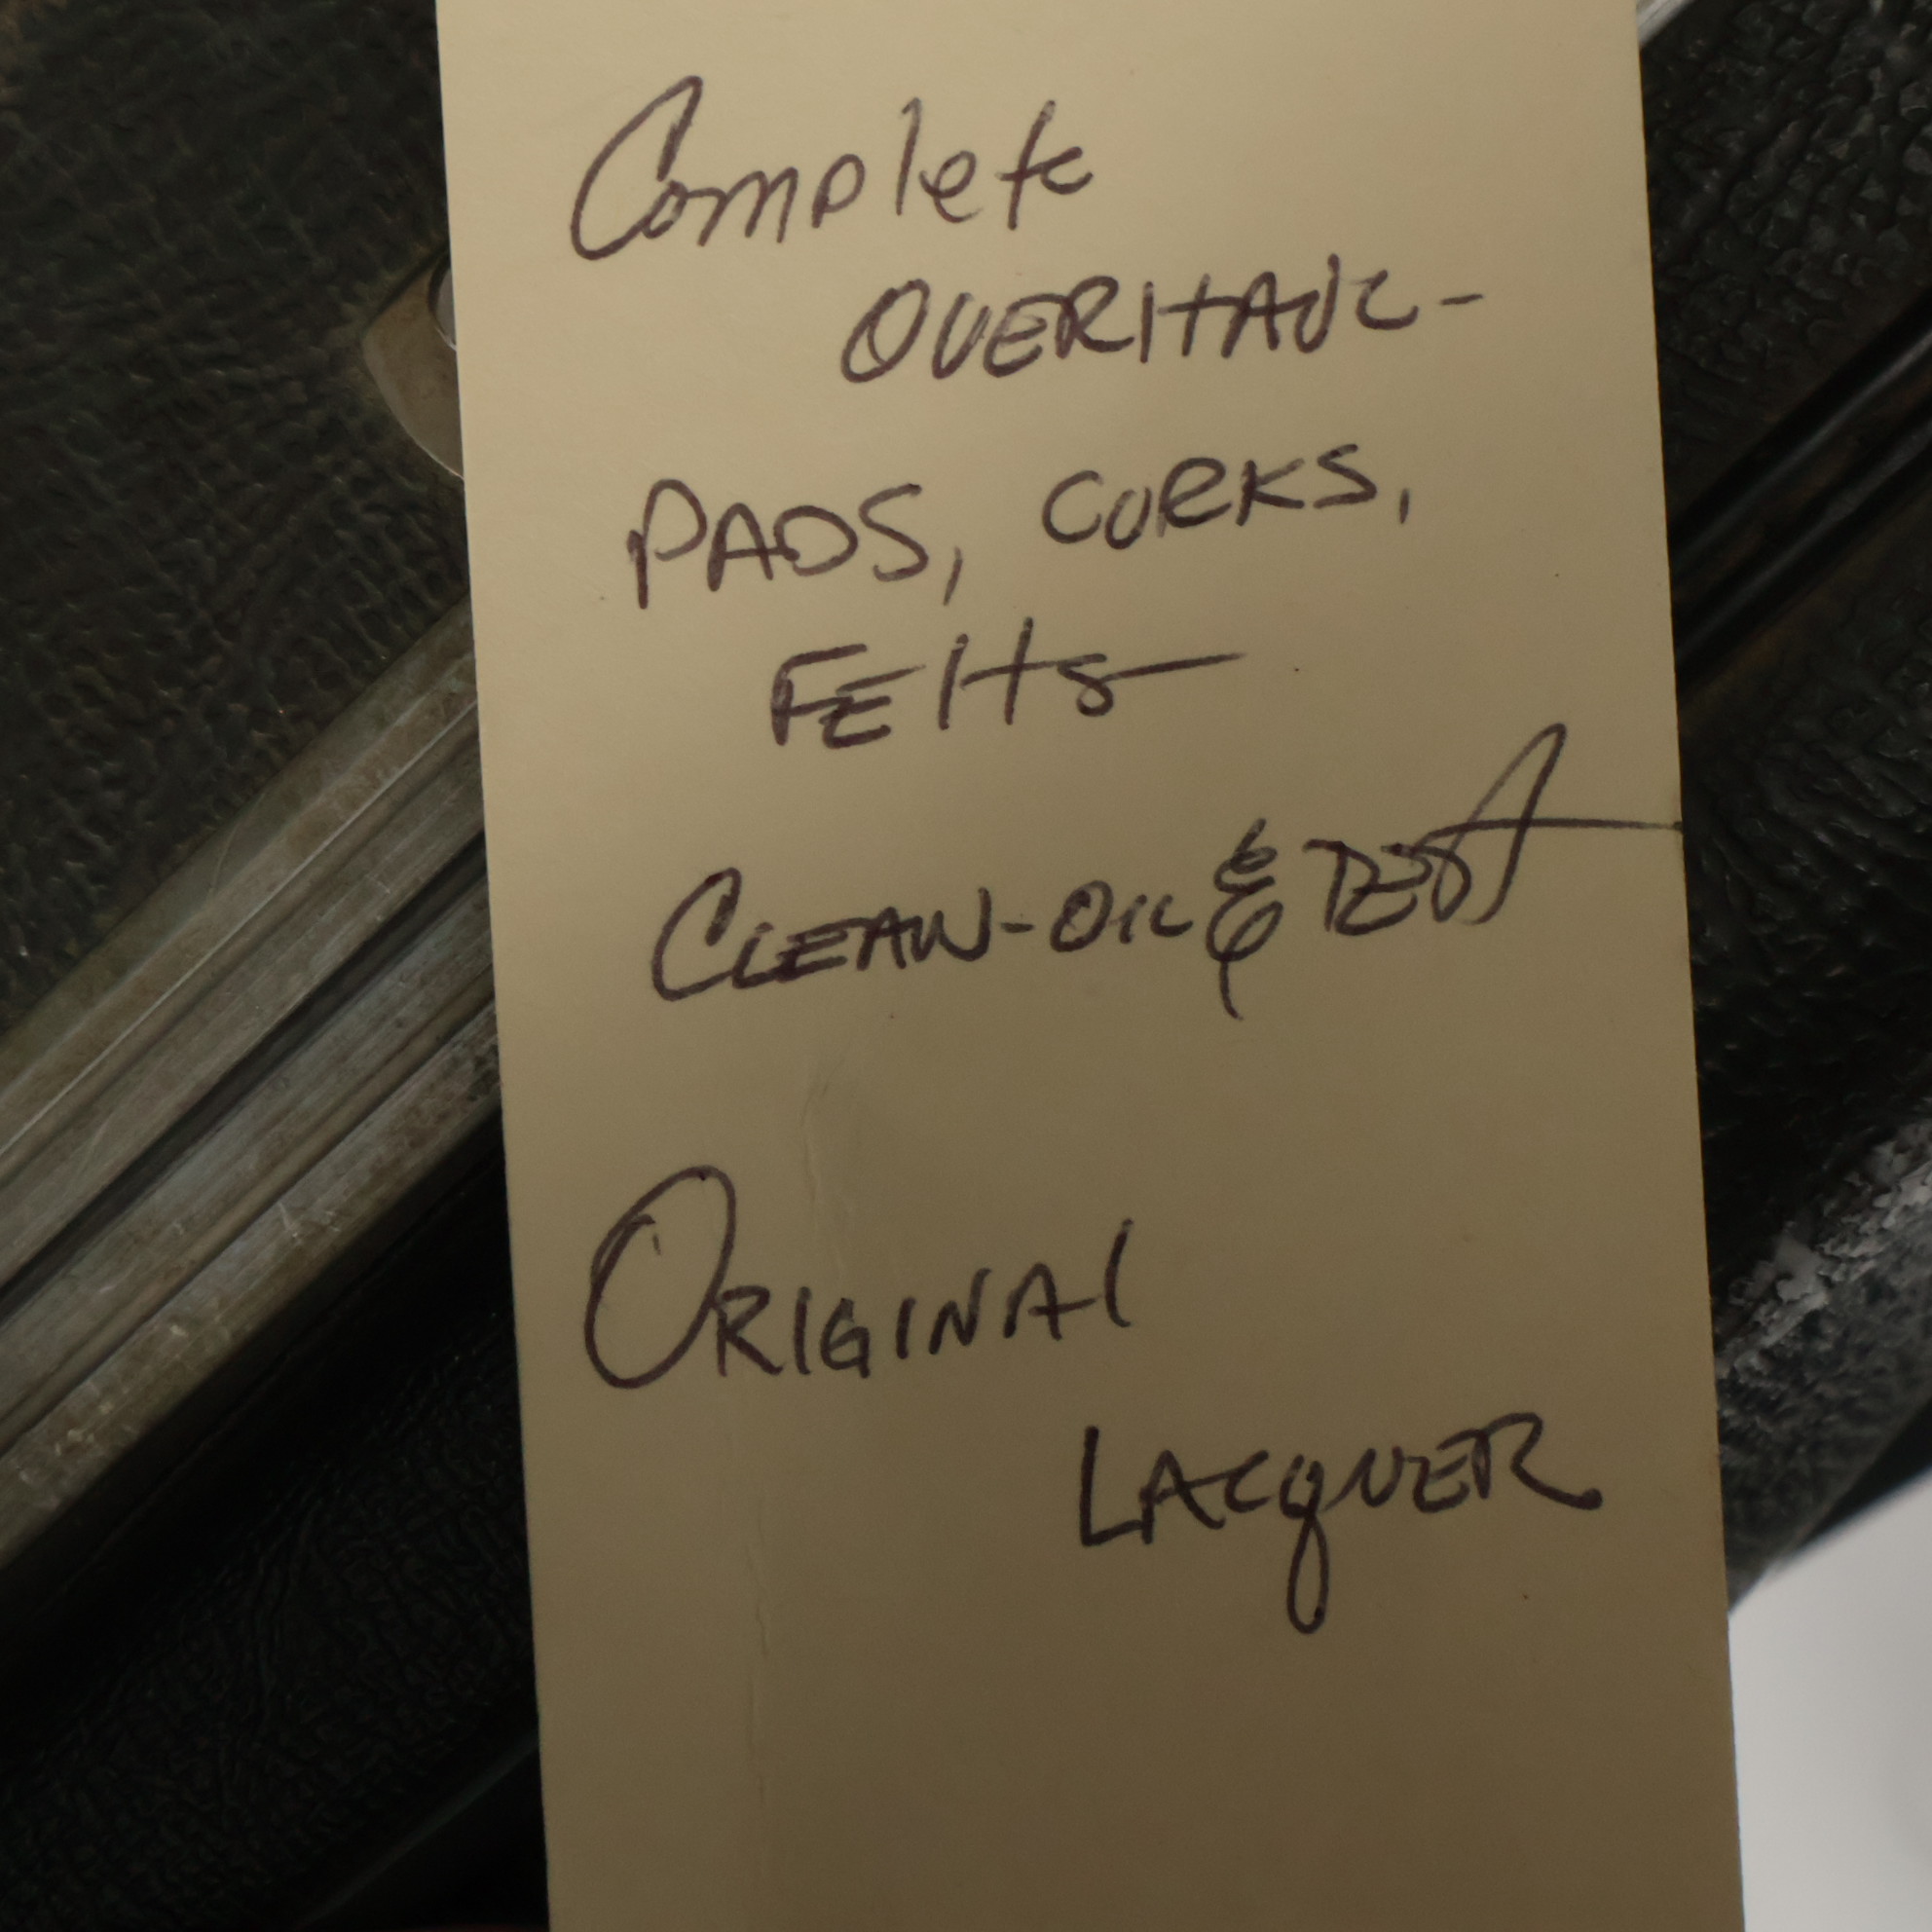 Complete
OVERHAUL -
PADS, CORKS,
FEltS
CLEAN - OIL & TEST
ORIGINAl
LACqUER